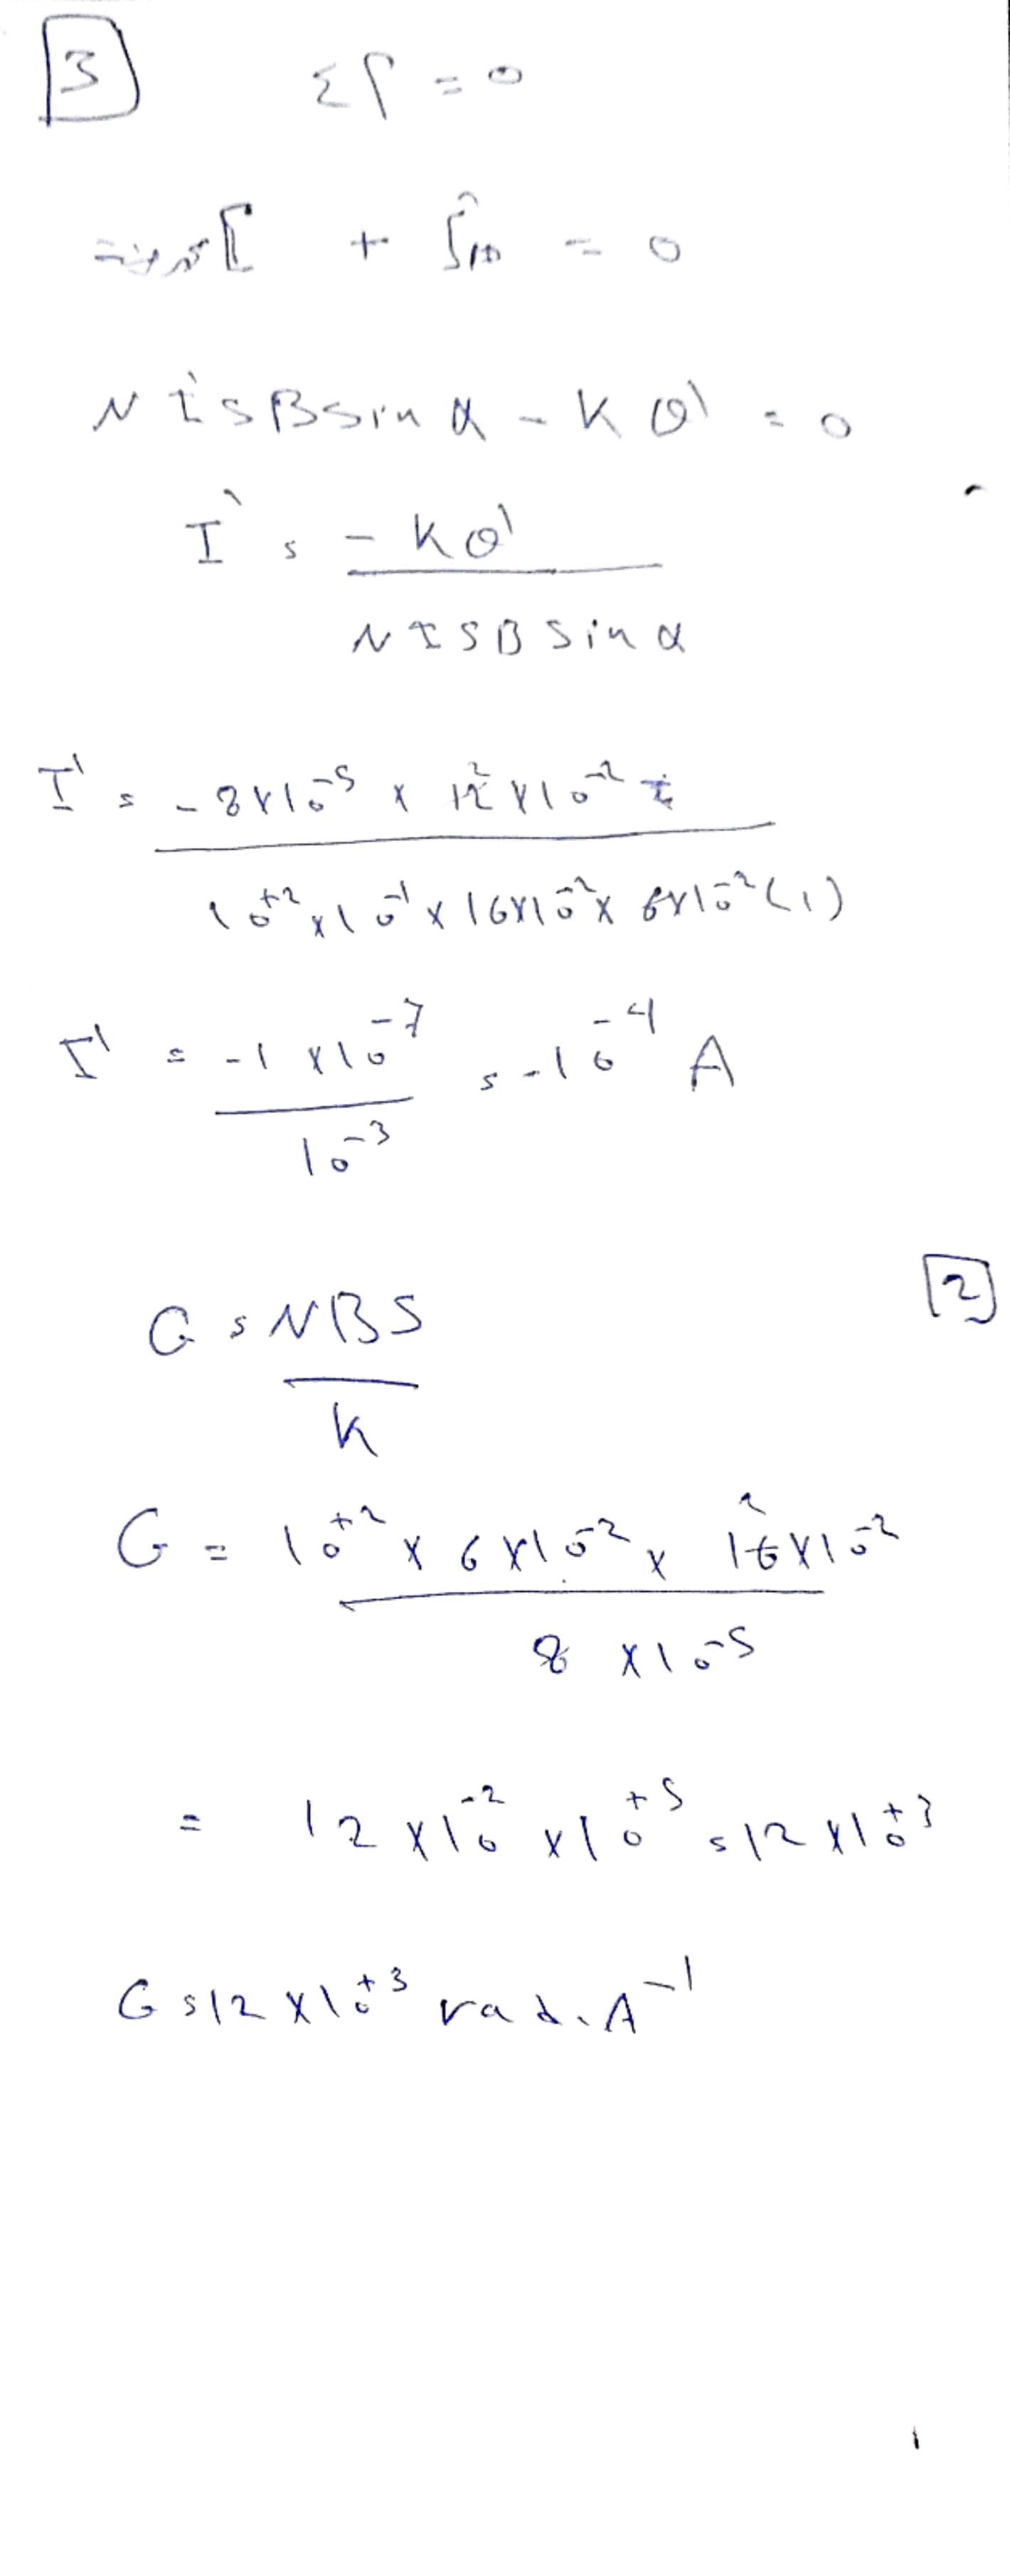 3
ΣΓ = 0
+ = 0
N I' S B sin α - K θ' = 0
I' = - K θ'
N I S B sin α
I' = - 8 × 10^-5 × 12 × 10^-2
10^+2 × 10^-1 × 16 × 10^-2 × 6 × 10^-2 (1)
I' = -1 × 10^-7 = -10^-4 A
10^-3
2
G = NBS
K
G = 10^+2 × 6 × 10^-2 × 16 × 10^-2
8 × 10^-5
= 12 × 10^-2 × 10^+5 = 12 × 10^+3
G = 12 × 10^+3 rad. A^-1